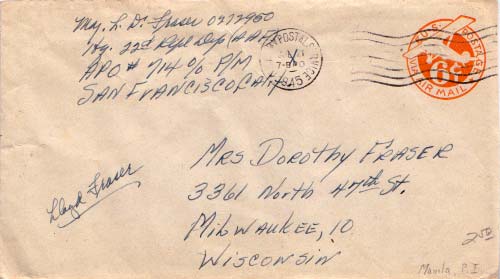 Maj. L. D. Fraser 0273950
Hq. 22d Repl Dep (AAF)
APO # 714 c/o P/M
SAN FRANCISCO Calif.
POSTAL SERVICE
1945
U.S. POSTAGE
6c
VIA AIR MAIL
Mrs DOROTHY FRASER
3361 North 47th St.
MILWAUKEE, 10
WISCONSIN
Lloyd Fraser
2.50
Manila, P.I